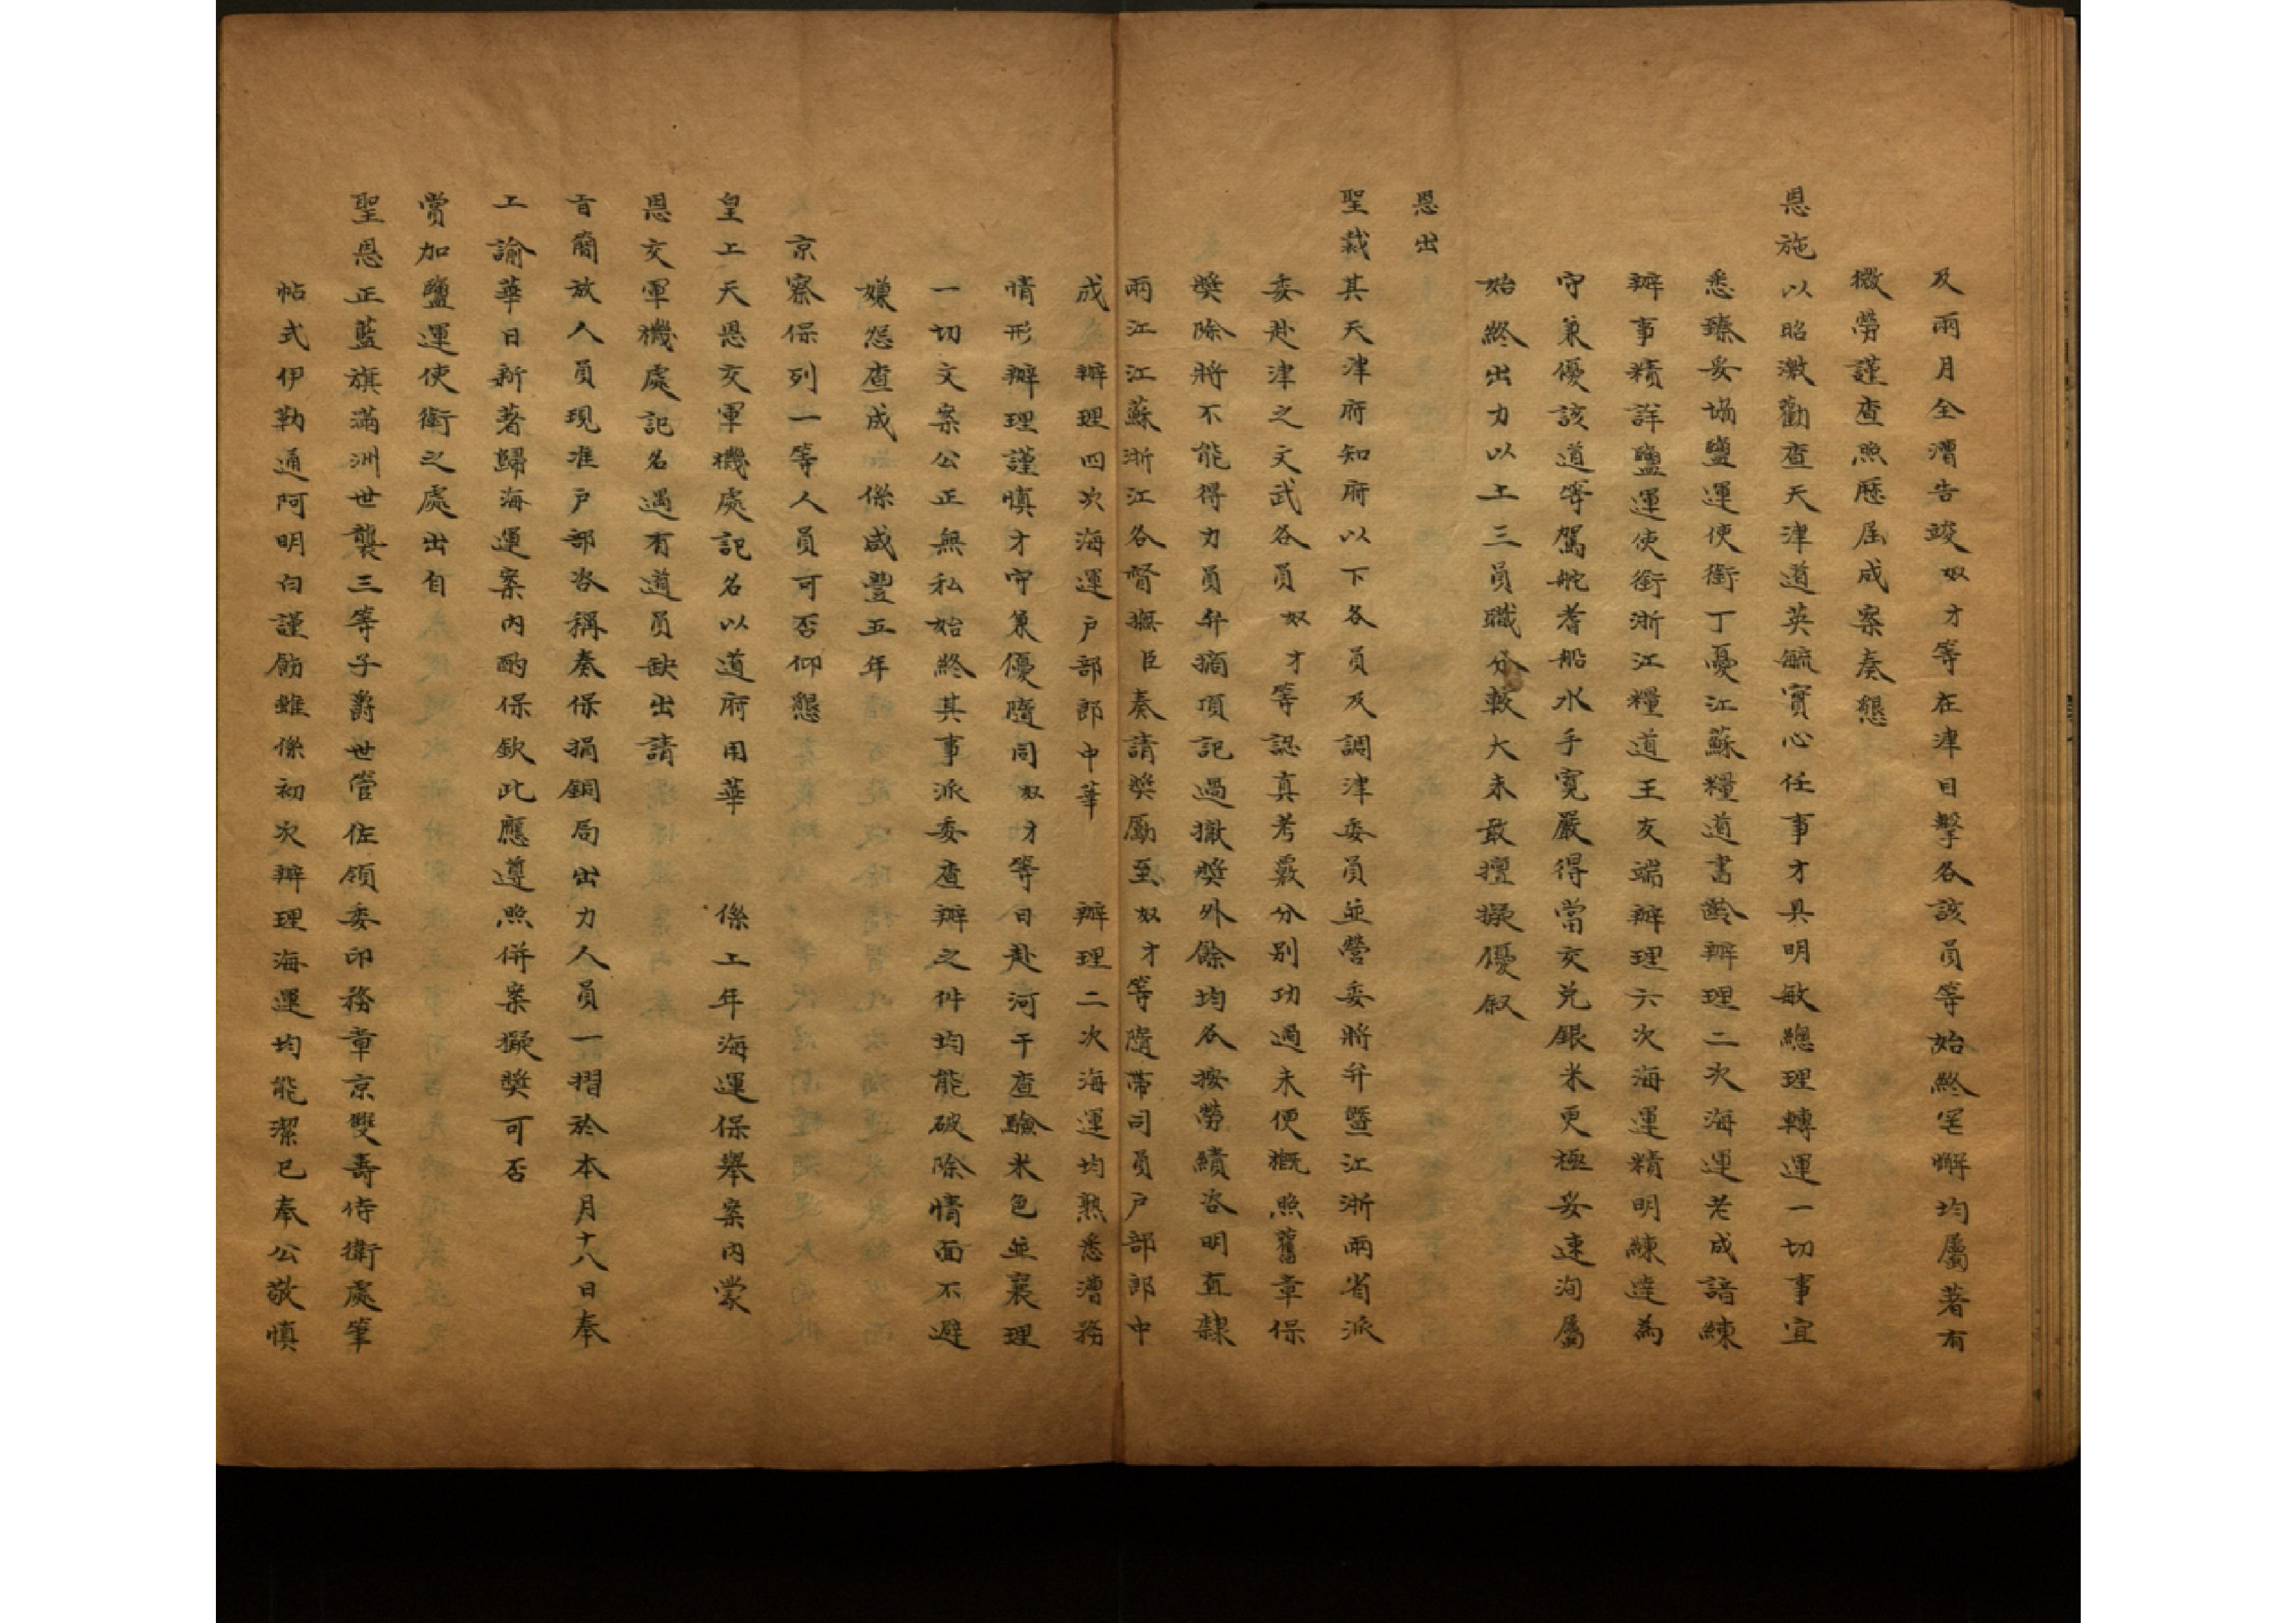 及兩月全漕告竣奴才等在津目擊各該員等始終罔懈均屬著有
微勞謹查照歷屆成案奏懇
恩施以昭激勸查天津道英毓實心任事才具明敏總理轉運一切事宜
悉臻妥協鹽運使銜丁憂江蘇糧道書齡辦理二次海運老成諳練
辦事精詳鹽運使銜浙江糧道王友端辦理六次海運精明練達為
守兼優該道等駕馭耆船水手寬嚴得當交兌銀米更極妥速洵屬
始終出力以上三員職分較大未敢擅擬優叙
恩出
聖裁其天津府知府以下各員及調津委員並營委將弁暨江浙兩省派
委赴津之文武各員奴才等認真考覈分別功過未便概照舊章保
獎除將不能得力員弁摘頂記過撤獎外餘均各按勞績咨明直隸
兩江江蘇浙江各督撫臣奏請獎勵至奴才等隨帶司員戶部郎中
成 辦理四次海運戶部郎中華 辦理二次海運均熟悉漕務
情形辦理謹慎才守兼優隨同奴才等日赴河干查驗米色並襄理
一切文案公正無私始終其事派委查辦之件均能破除情面不避
嫌怨查成 係咸豐五年
京察保列一等人員可否仰懇
皇上天恩交軍機處記名以道府用華 係上年海運保舉案內蒙
恩交軍機處記名遇有道員缺出請
旨簡放人員現准戶部咨稱奏保捐銅局出力人員一摺於本月十八日奉
上諭華日新著歸海運案內酌保欽此應遵照併案擬獎可否
賞加鹽運使銜之處出自
聖恩正藍旗滿洲世襲三等子爵世管佐領委印務章京雙壽侍衛處筆
帖式伊勒通阿明白謹飭雖係初次辦理海運均能潔己奉公敬慎